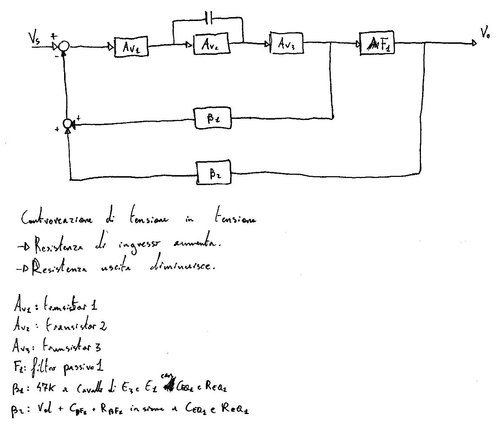 Vs + Av1 Av2 Av3 F1 Vo
-
β1
+ +
β2
Controreazione di tensione in tensione
→ Resistenza di ingresso aumenta.
→ Resistenza uscita diminuisce.
Av1: transistor 1
Av2: transistor 2
Av3: transistor 3
F1: filtro passivo 1
β1: 47K a cavallo di E3 e E1 con CEQ1 e REQ1
β2: Vol + CβF2 + RβF2 insieme a CEQ1 e REQ1